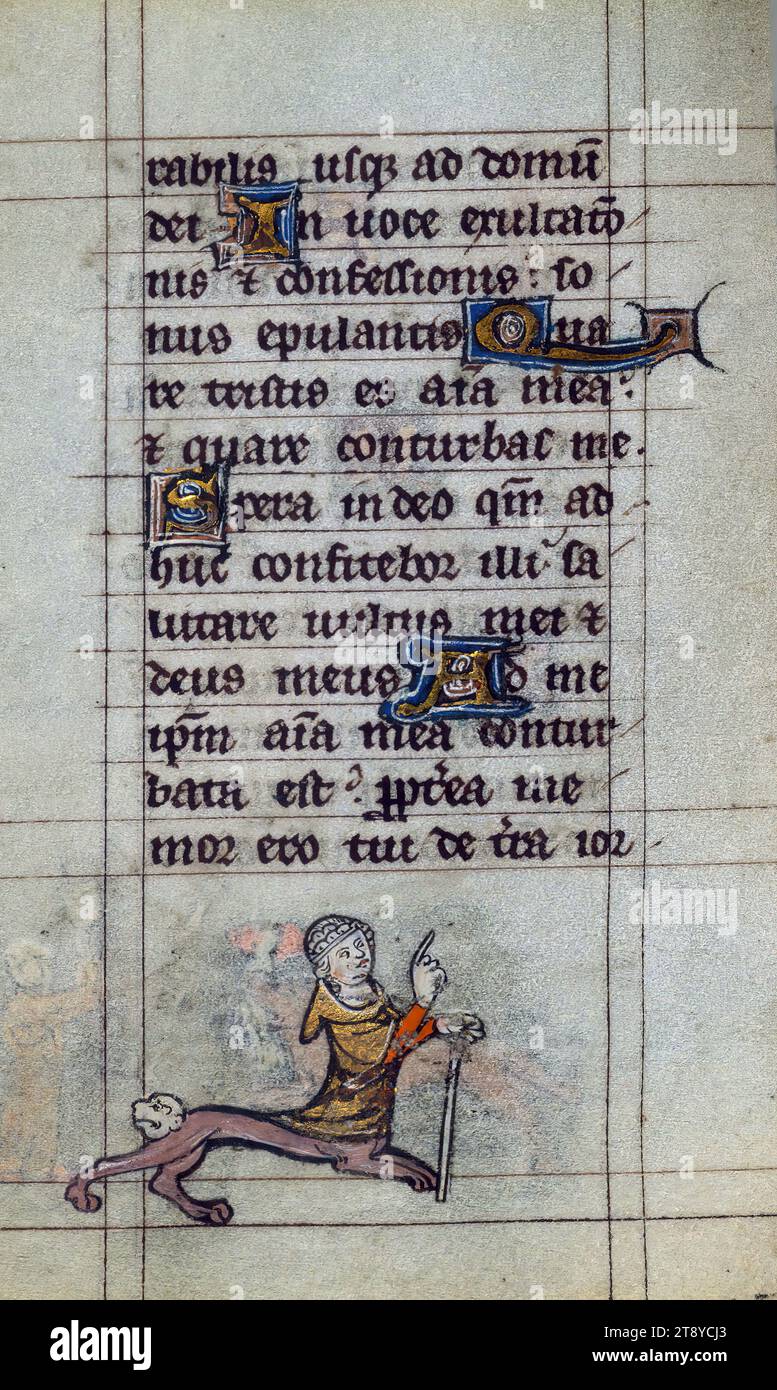 rabilis usq3 ad domū
dei In uoce exultatō
nis ⁊ confessionis: so
nus epulantis Qua
re tristis es aīā mea:
⁊ quare conturbas me.
Spera in deo qm̄ ad
huc confitebor illi: sa
lutare uultus mei ⁊
deus meus Ad me
ipm̄ aīā mea contur
bata est: ꝓpt'ea me
mor ero tui de t'ra ior
alamy
alamy
a
a
alamy
Image ID: 2T8YCJ3
www.alamy.com